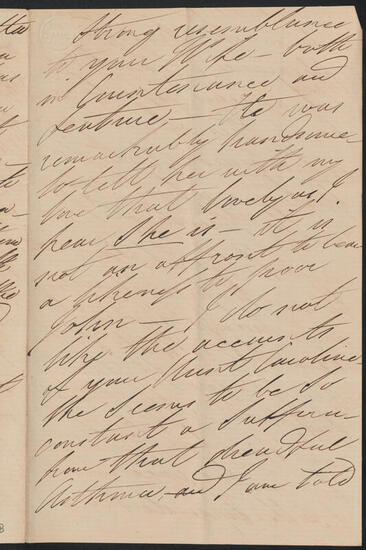 strong resemblance
to your Wife - both
in Countenance and
feature - He was
remarkably handsome -
so tell her with my
love that lovely as I
hear She is - it is
not an affront to bear
a likeness to poor
John - I do not
like the accounts
of your Aunt Caroline
She seems to be so
constant a sufferer
from that dreadful
Asthma, and I am told